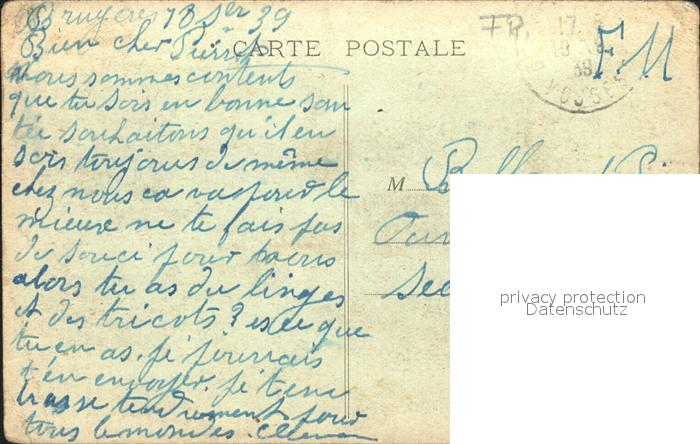 Bruyères 18 Sbre 39
Bien cher Pierrot
CARTE POSTALE
FM
17
VOSGES
Nous sommes contents
que tu sois en bonne san
tée souhaitons qu'il en
sois toujours de même
chez nous ca va pour le
mieux ne te fais pas
de souci pour nous
alors tu as du linges
et des tricots? es ce que
tu en as. je pourrais
t'en envoyer. je t'em
brasse tendrement pour
tous le mondes.
M
privacy protection
Datenschutz